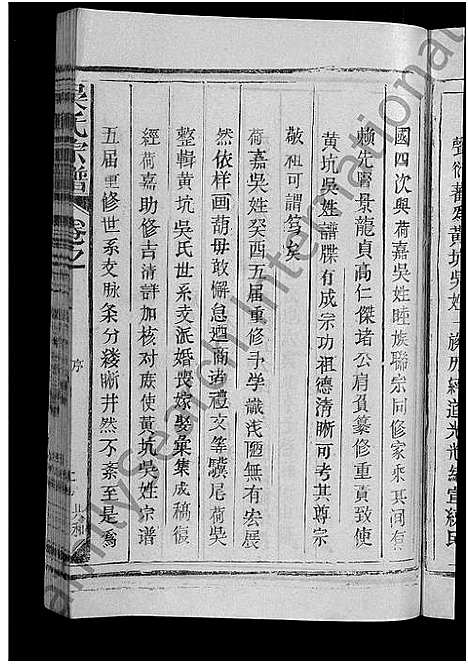 聲衍蕃為黃坑吳姓 族历經道光光緒宣統民
國四次與荷嘉吳姓睦族聯宗同修家乘其间有
賴先賢景龍貞高仁傑诸公肩負纂修重責致使
黃坑吳姓譜牒有成宗功祖德清晰可考其尊宗
敬祖可謂笃矣
荷嘉吳姓癸酉五届重修予学識浅陋無有宏展
然依样画葫毋敢懈怠廼商诸禮文等驥尾荷吳
整輯黃坑吳氏世系支派婚喪嫁娶彙集成稿復
經荷嘉助修吉清詳加核对族使黃坑吳姓宗谱
五届重修世系支脉条分缕晰井然不紊至是為
吳氏宗譜
卷之一
序
共和
FamilySearch International